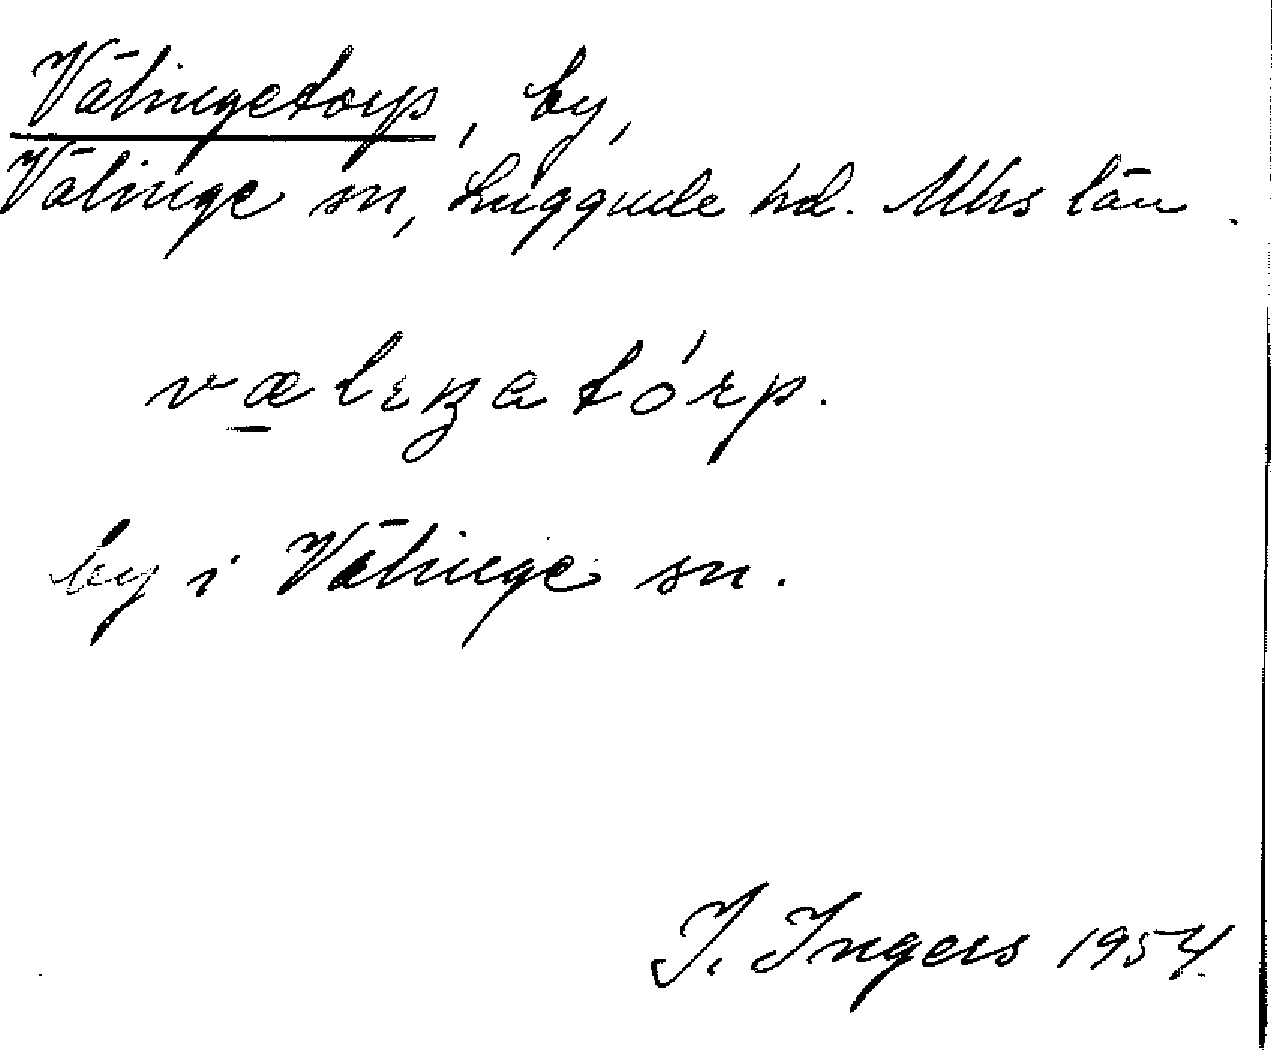 Välingetorp, by,
Välinge sn, Luggude hd. Mhs län.
væleŋatórp.
by i Välinge sn.
I. Ingers 1954.